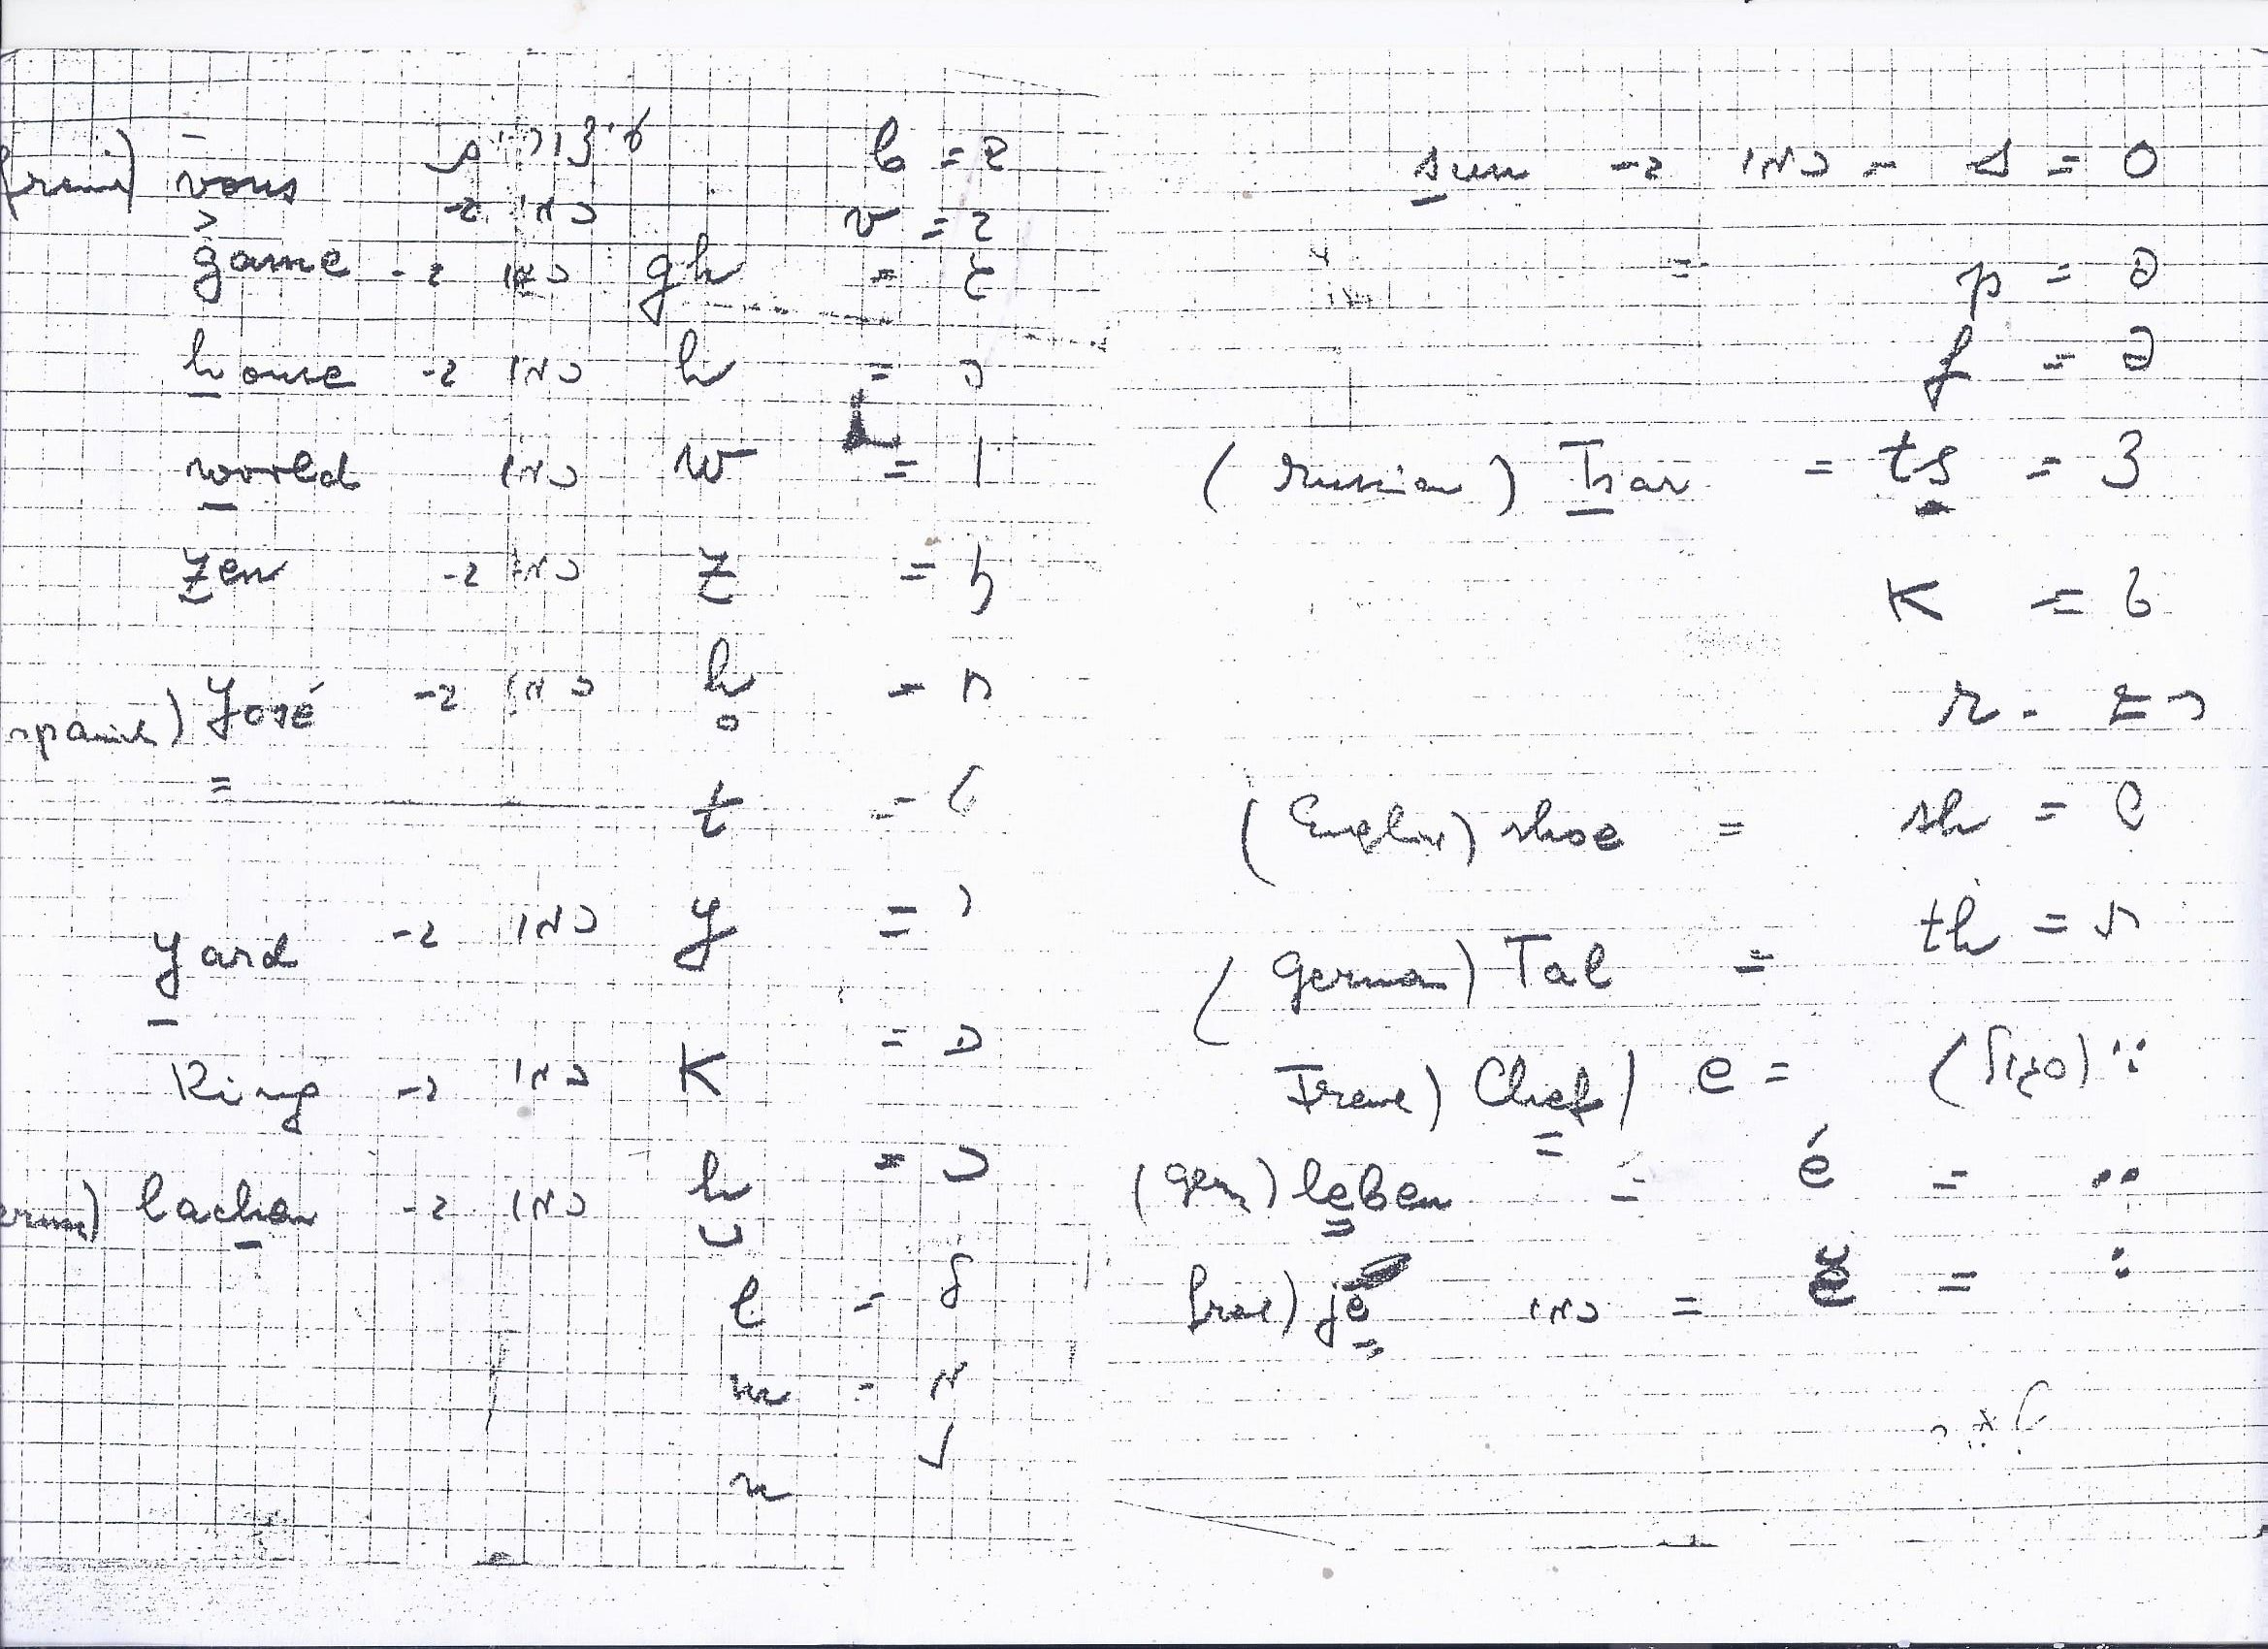 b = בּ
vous כמו ב- v = ב
game כמו ב- gh = ג
house כמו ב- h = ה
world כמו w = ו
zen כמו ב- z = ז
spanish) José כמו ב- ḥ = ח
t = ט
yard כמו ב- y = י
King כמו ב- K = כ
lachen כמו ב- ḫ = כ
l = ל
m = מ
n נ
sun כמו ב- s = ס
p = פ
f = פ
(russian) Tsar = ts = צ
K = ק
r = ר
(English) shoe = sh = ש
(german) Tal = th = ת
Chef) e = (סגול)
(germ) leben = é = ..
je כמו = ĕ = :